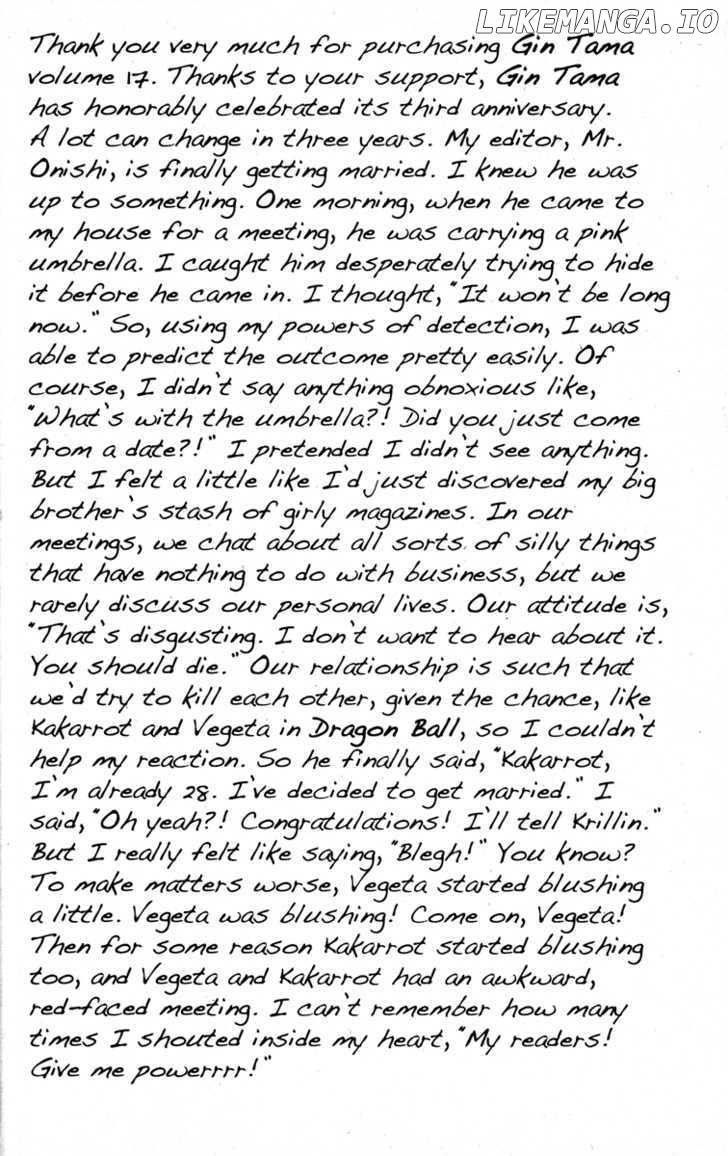 LIKEMANGA.IO
Thank you very much for purchasing Gin Tama
volume 17. Thanks to your support, Gin Tama
has honorably celebrated its third anniversary.
A lot can change in three years. My editor, Mr.
Onishi, is finally getting married. I knew he was
up to something. One morning, when he came to
my house for a meeting, he was carrying a pink
umbrella. I caught him desperately trying to hide
it before he came in. I thought, "It won't be long
now." So, using my powers of detection, I was
able to predict the outcome pretty easily. Of
course, I didn't say anything obnoxious like,
"What's with the umbrella?! Did you just come
from a date?!" I pretended I didn't see anything.
But I felt a little like I'd just discovered my big
brother's stash of girly magazines. In our
meetings, we chat about all sorts of silly things
that have nothing to do with business, but we
rarely discuss our personal lives. Our attitude is,
"That's disgusting. I don't want to hear about it.
You should die." Our relationship is such that
we'd try to kill each other, given the chance, like
Kakarrot and Vegeta in Dragon Ball, so I couldn't
help my reaction. So he finally said, "Kakarrot,
I'm already 28. I've decided to get married." I
said, "Oh yeah?! Congratulations! I'll tell Krillin."
But I really felt like saying, "Blegh!" You know?
To make matters worse, Vegeta started blushing
a little. Vegeta was blushing! Come on, Vegeta!
Then for some reason Kakarrot started blushing
too, and Vegeta and Kakarrot had an awkward,
red-faced meeting. I can't remember how many
times I shouted inside my heart, "My readers!
Give me powerrrr!"